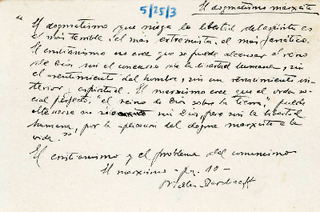 5/25/3
El dogmatismo marxista
" El dogmatismo que niega la libertad del espíritu es
el más terrible, el más extremista, el más fanático.
El cristianismo no cree que se puede alcanzar el reino
de Dios sin el concurso de la libertad humana y sin
el sentimiento del hombre, sin un renacimiento in-
terior, espiritual. El marxismo cree que el orden so-
cial perfecto, "el reino de Dios sobre la tierra," puede
alcanzarse no sin Dios pero sin la libertad
humana, por la aplicación del dogma marxista a la
vida."
El cristianismo y el problema del comunismo
El marxismo - pg. 10 -